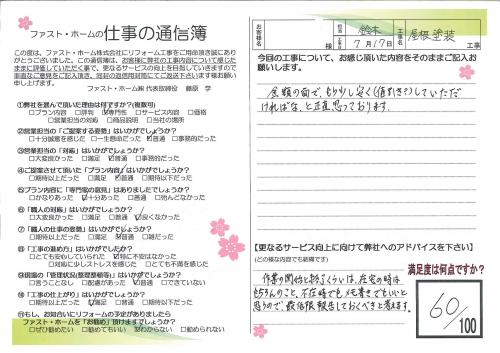 ファスト・ホームの仕事の通信簿
この度は、ファスト・ホーム株式会社にリフォーム工事をご用命頂き誠にあり
がとうございました。この通信簿は、お客様に弊社の工事内容について感じた
ままに評価していただく事で、更なるサービス向上を目指していきますので
率直なご意見をご記入頂き、同封の返信用封筒にてご返送下さいます様お願い
申し上げます。
ファスト・ホーム㈱ 代表取締役 藤原 学
①弊社を選んで頂いた理由は何ですか?(複数可)
□プラン内容 □評判 ☑専門性 □サービス内容 □価格
□営業担当の対応 □商品説明 □当社の場所
②営業担当の「ご提案する姿勢」はいかがでしょうか?
□十分誠意を感じた □一生懸命だった ☑普通 □事務的だった
③営業担当の「対応」はいかがでしょうか?
□大変良かった □満足 ☑普通 □事務的だった
④ご提案させて頂いた「プラン内容」はいかがでしたか?
□期待以上だった □満足 ☑普通 □期待以下だった
⑤プラン内容に「専門家の意見」はありましたでしょうか?
□かなりあった ☑十分あった □普通 □殆んどなかった
⑥「職人の対応」はいかがでしょうか?
□大変良かった □満足 ☑普通 □良くなかった
⑦「職人の仕事の姿勢」はいかがでしょうか?
□期待以上だった □満足 ☑普通 □雑だった
⑧「工事の進め方」はいかがでしたでしょうか?
□とても安心していられた ☑特に不安はなかった
□対応に少しストレスを感じた □とても不満を感じた
⑨現場の「管理状況(整理整頓等)」はいかがでしたでしょうか?
□言うことなし □配慮があった ☑普通 □できていない
⑩「工事の仕上がり」はいかがでしょうか?
□期待以上だった □満足 ☑普通 □期待以下だった
⑪もし、お知合いにリフォームの予定がありましたら
ファスト・ホームを「お勧め」頂けますでしょうか?
□ぜひ勧めたい □勧めてもいい ☑わからない □勧められない
お客様名 様
担当 鈴木
工事 7月17日
工事名 屋根塗装 工事
今回の工事について、お感じ頂いた内容をそのままご記入お
願いします。
金額の面で、もう少し安く(値引き?)していただ
ければな、と正直思っております。
【更なるサービス向上に向けて弊社へのアドバイスを下さい】
(どの様な内容でも結構です)
作業の開始と終了くらいは、在宅の時は
もちろんのこと、不在時でもメモ書きでもいいと
思うので、最低限報告しておくべきと考えます。
満足度は何点ですか?
60/100